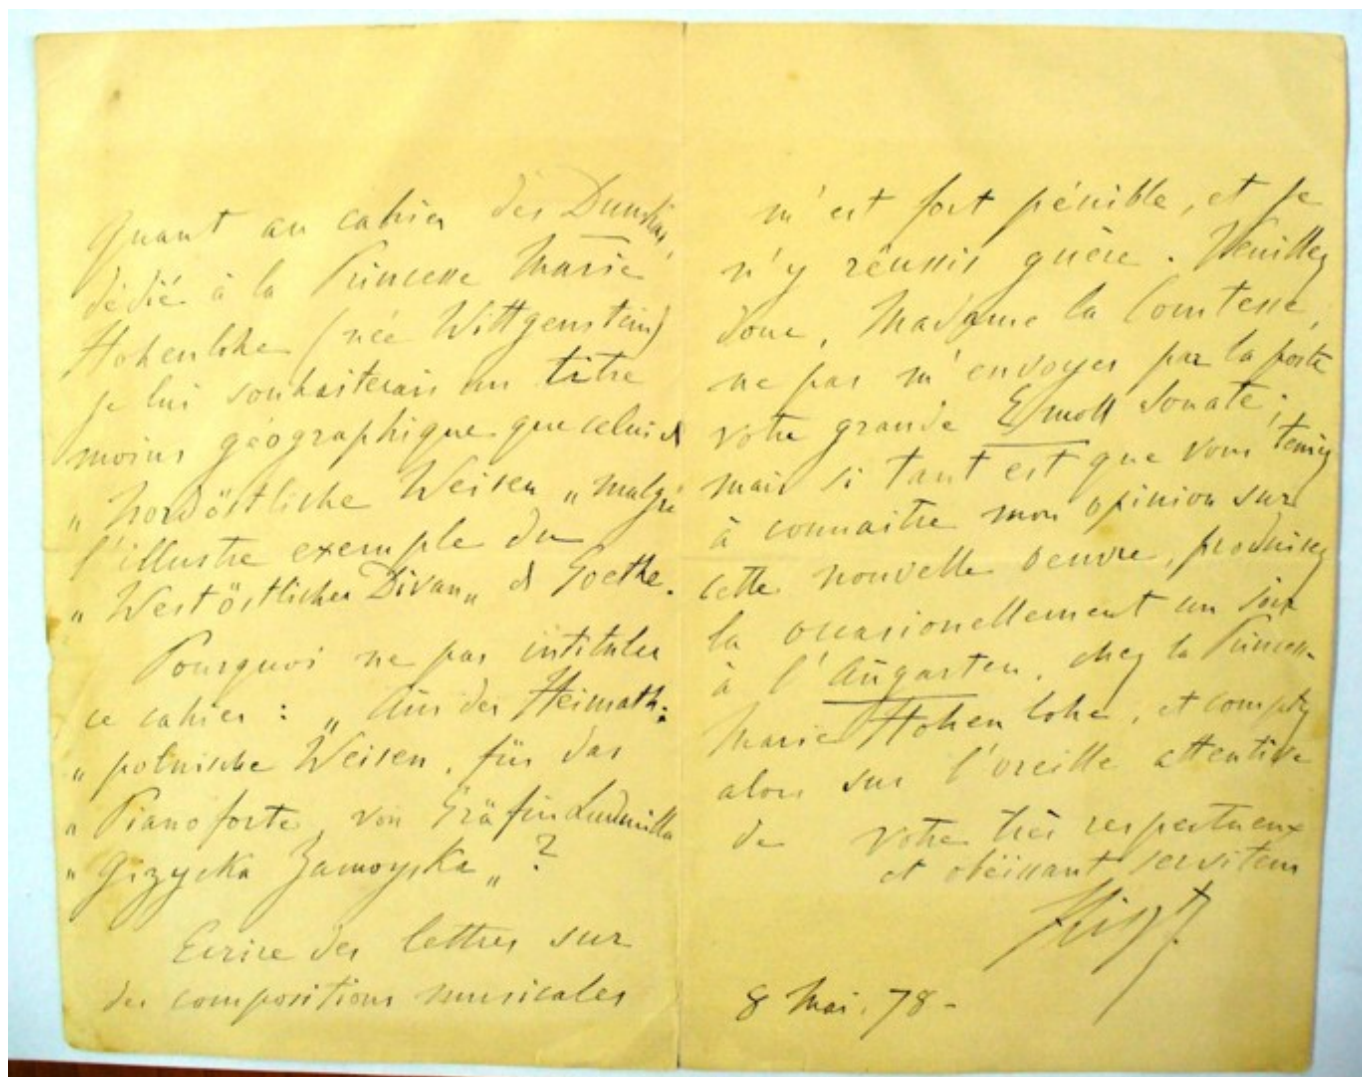 Quant au cahier des Dumkas,
dédié à la Princesse Marie
Hohenlohe (née Wittgenstein)
je lui souhaiterais un titre
moins géographique que celui de
„Nordöstliche Weisen„ malgré
l'illustre exemple du
„Westöstlicher Divan„ de Goethe.
Pourquoi ne pas intituler
ce cahier : „Aus der Heimath:
„polnische Weisen, für das
„Pianoforte, von Gräfin Ludmilla
„Gizycka Zamoyska„?
Ecrire des lettres sur
des compositions musicales
m'est fort pénible, et je
n'y réussis guère. Veuillez
donc, Madame la Comtesse,
ne pas m'envoyer par la poste
votre grande E moll Sonate;
mais si tant est que vous teniez
à connaitre mon opinion sur
cette nouvelle oeuvre, produisez
la occasionellement un soir
à l'Augarten, chez la Princesse
Marie Hohenlohe, et comptez
alors sur l'oreille attentive
de votre très respectueux
et obéissant serviteur
FLiszt
8 Mai. 78-